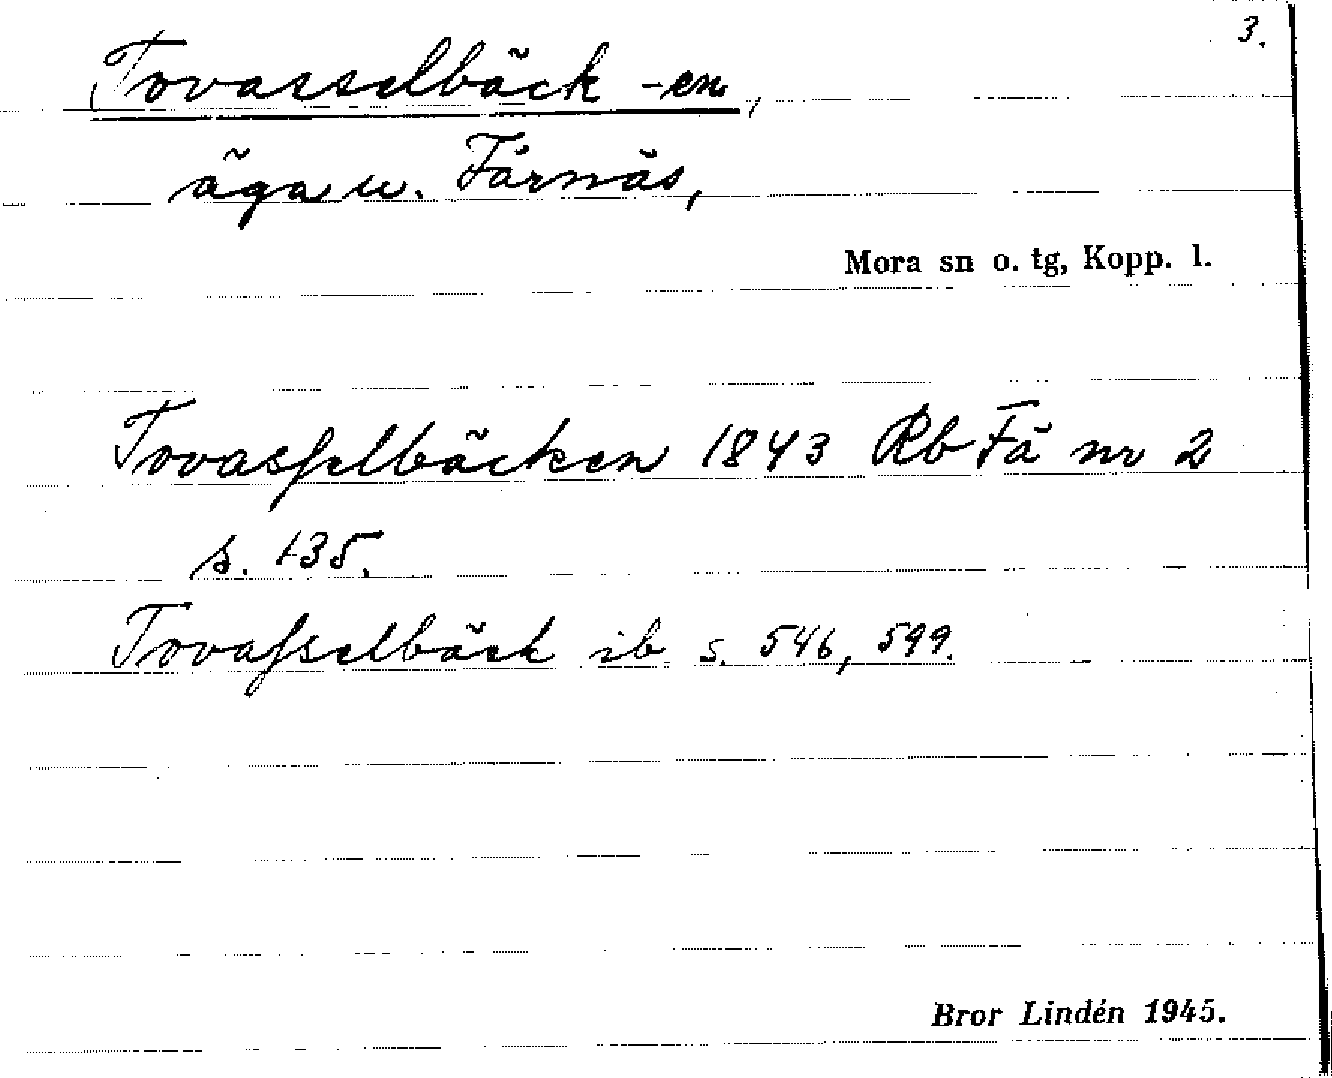 3.
Tovasselbäck -en,
äga u. Färnäs,
Mora sn o. tg, Kopp. l.
Tovasselbäcken 1843 Rb Fä nr 2
s. 135.
Tovasselbäck ib s. 546, 599.
Bror Lindén 1945.